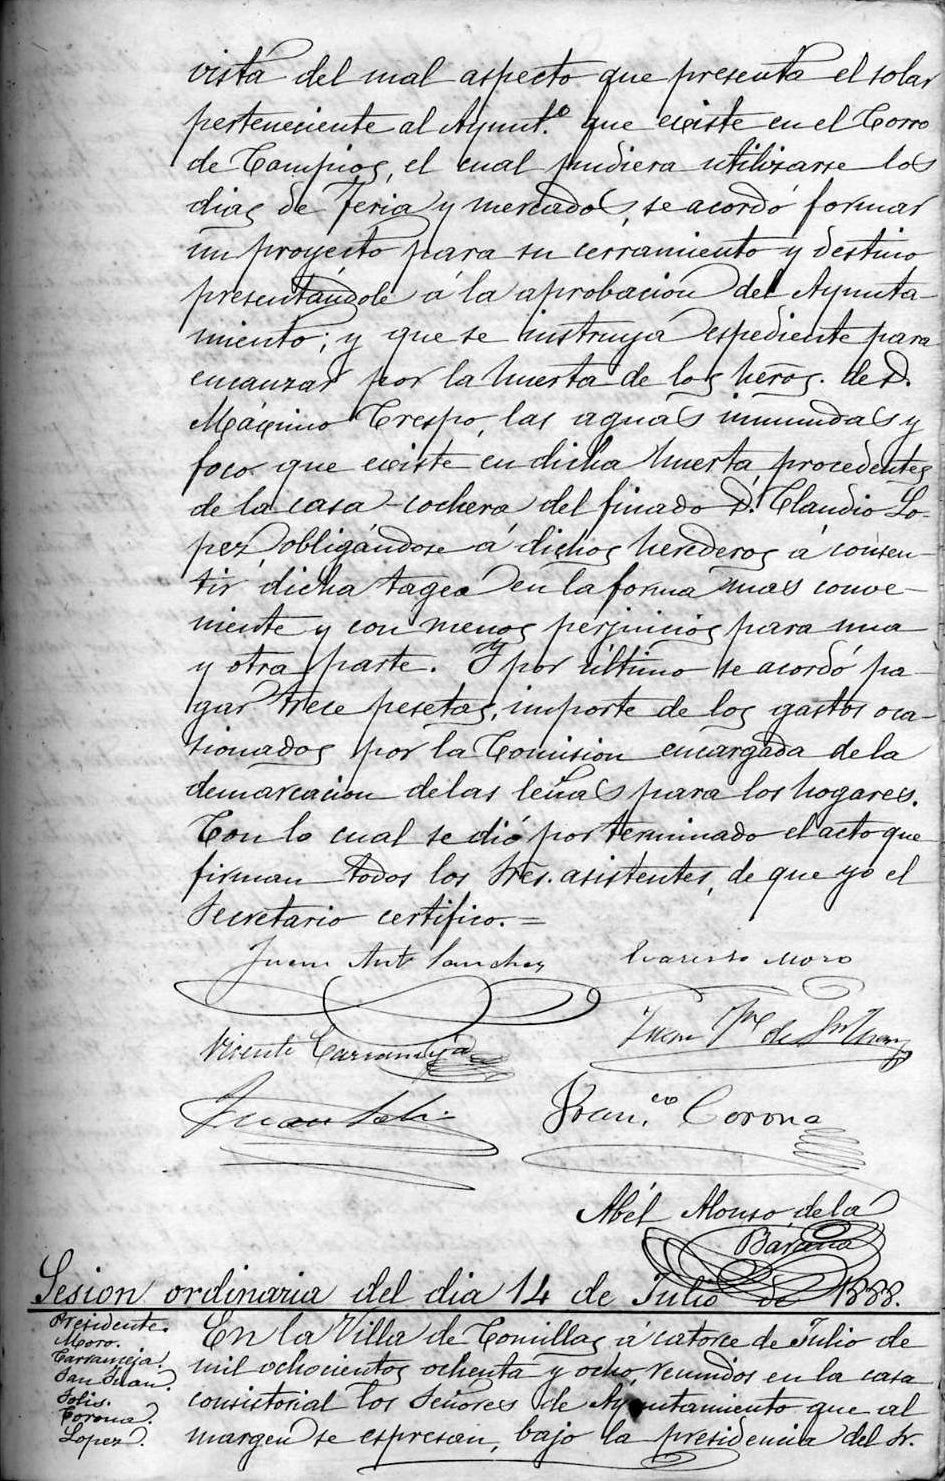 vista del mal aspecto que presenta el solar
perteneciente al Ayunt.º que existe en el Corro
de Campios, el cual pudiera utilizarse los
dias de Feria y mercados, se acordó formar
un proyecto para su cerramiento y destino
presentándole á la aprobacion del Ayunta-
miento; y que se instruya espediente para
encauzar por la huerta de los heros. de D.
Máximo Crespo, las aguas inmundas y
foco que existe en dicha huerta, procedentes
de la casa-cochera del finado D. Claudio Lo-
pez obligándose á dichos herederos á consen-
tir dicha tagea en la forma mas conve-
niente y con menos perjuicios para una
y otra parte. Y por último se acordó pa-
gar trece pesetas, importe de los gastos oca-
sionados por la Comision encargada de la
demarcacion de las leñas para los hogares.
Con lo cual se dió por terminado el acto que
firman todos los Sres. asistentes, de que yo el
Secretario certifico. =
Juan Ant Sanchez Evaristo Moro
Vicente Carranceja Juan de Sn Juan
Juan Solis Fran.co Corona
Abél Alonso de la
Bárcena
Sesion ordinaria del dia 14 de Julio de 1888.
Presidente.
Moro.
Carranceja.
San Juan.
Solis.
Corona.
Lopez.
En la Villa de Comillas á catorce de Julio de
mil ochocientos ochenta y ocho, reunidos en la casa
consistorial los Señores de Ayuntamiento que al
margen se espresan, bajo la presidencia del Sr.